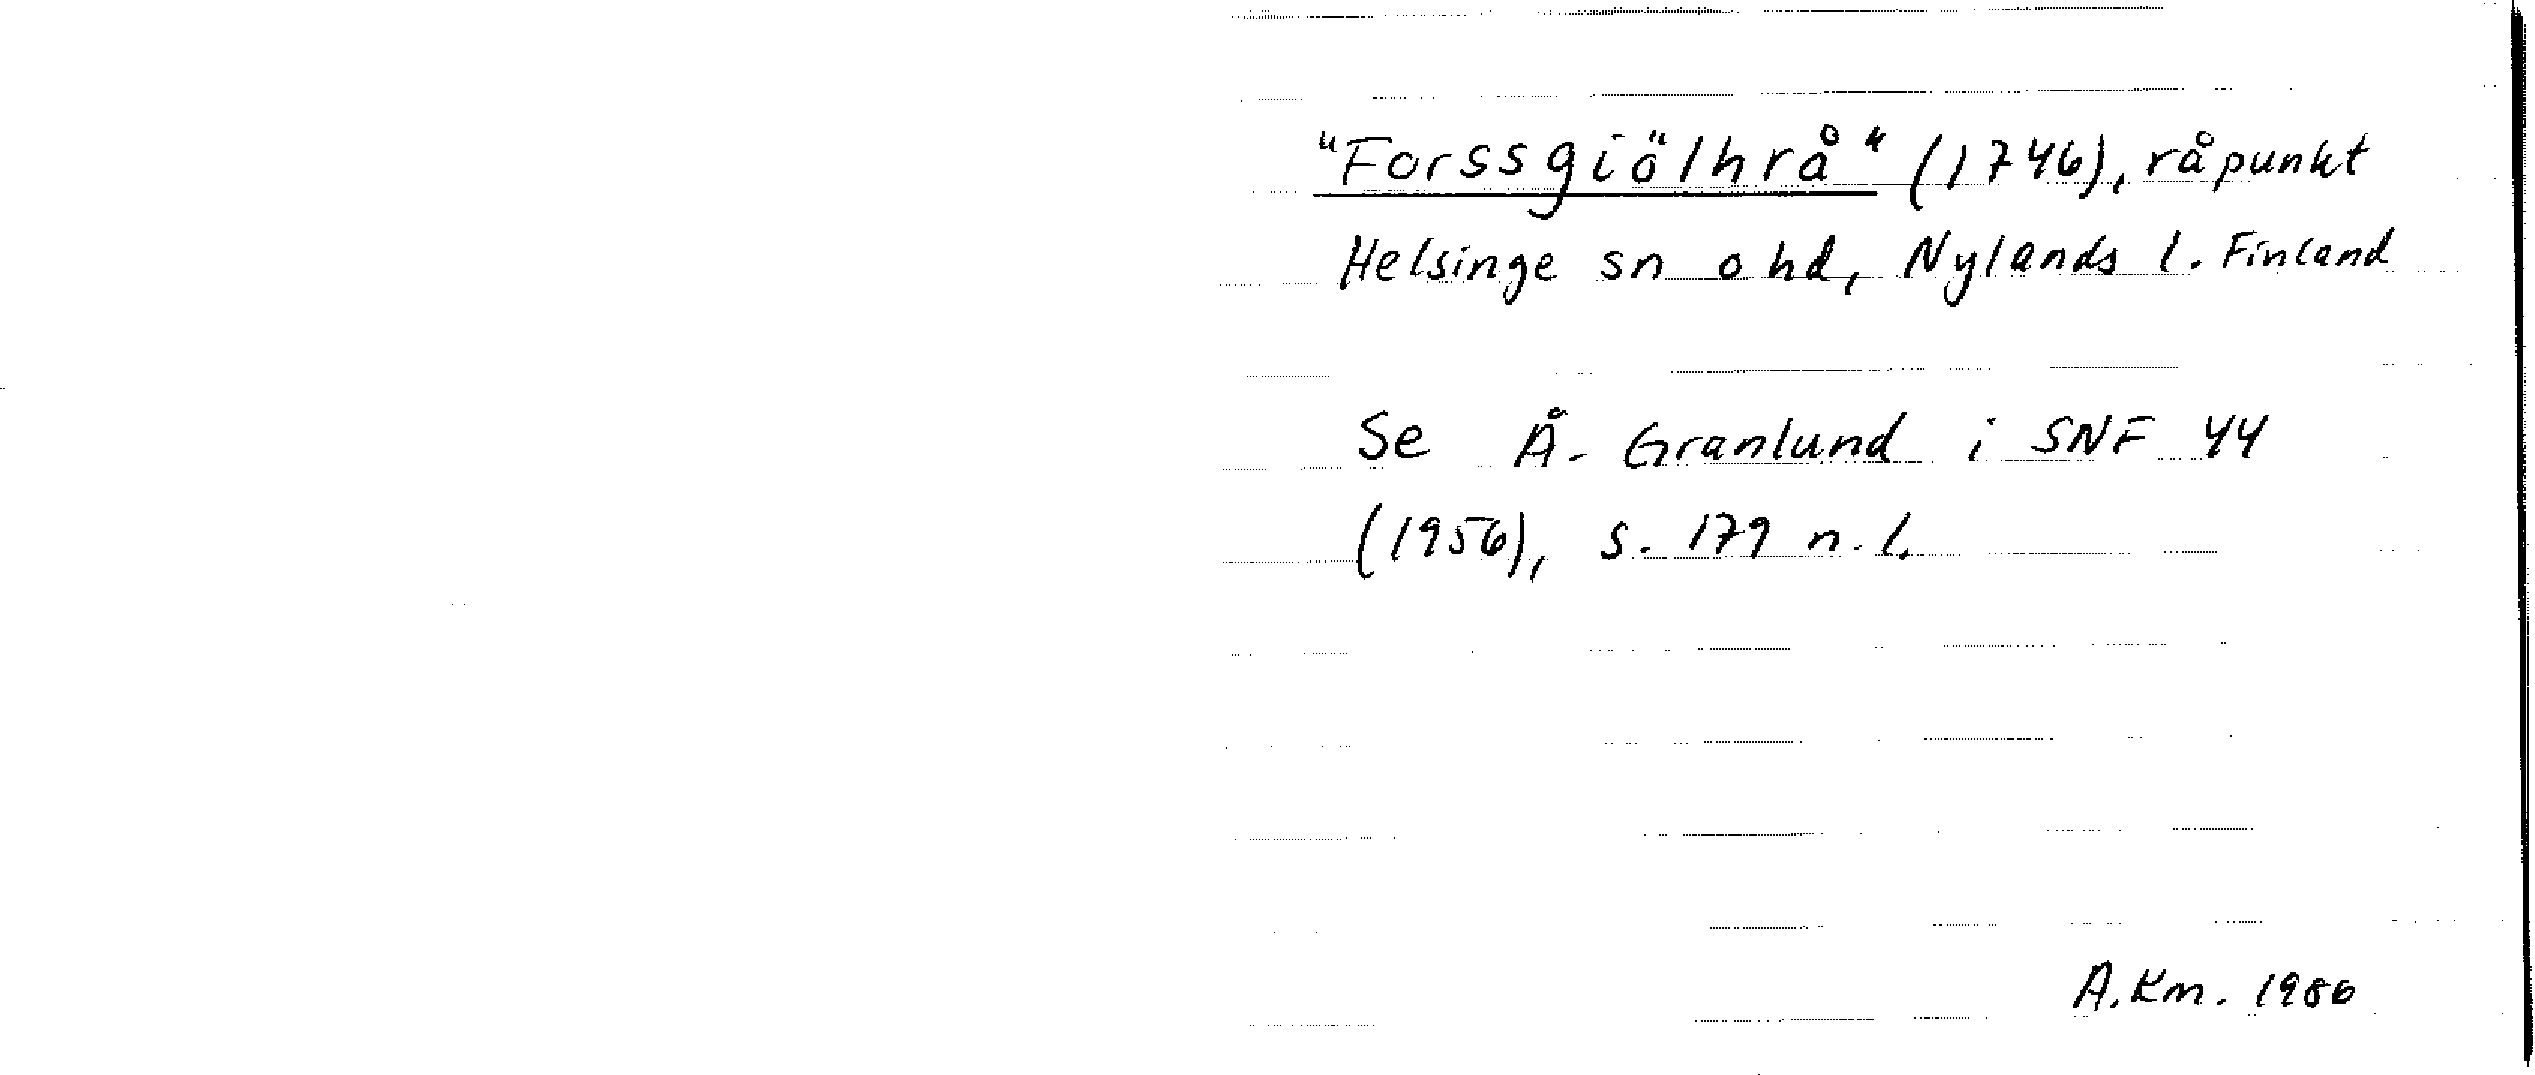 "Forssgiölhrå" (1746), råpunkt
Helsinge sn o hd, Nylands l. Finland
Se Å. Granlund i SNF 44
(1956), s. 179 n. l.
A. Km. 1986